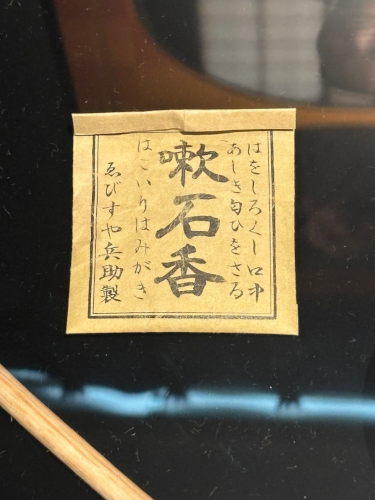 はをしろくし口中
あしき匂ひをさる
嗽石香
はこいりはみがき
ゑびすや兵助製